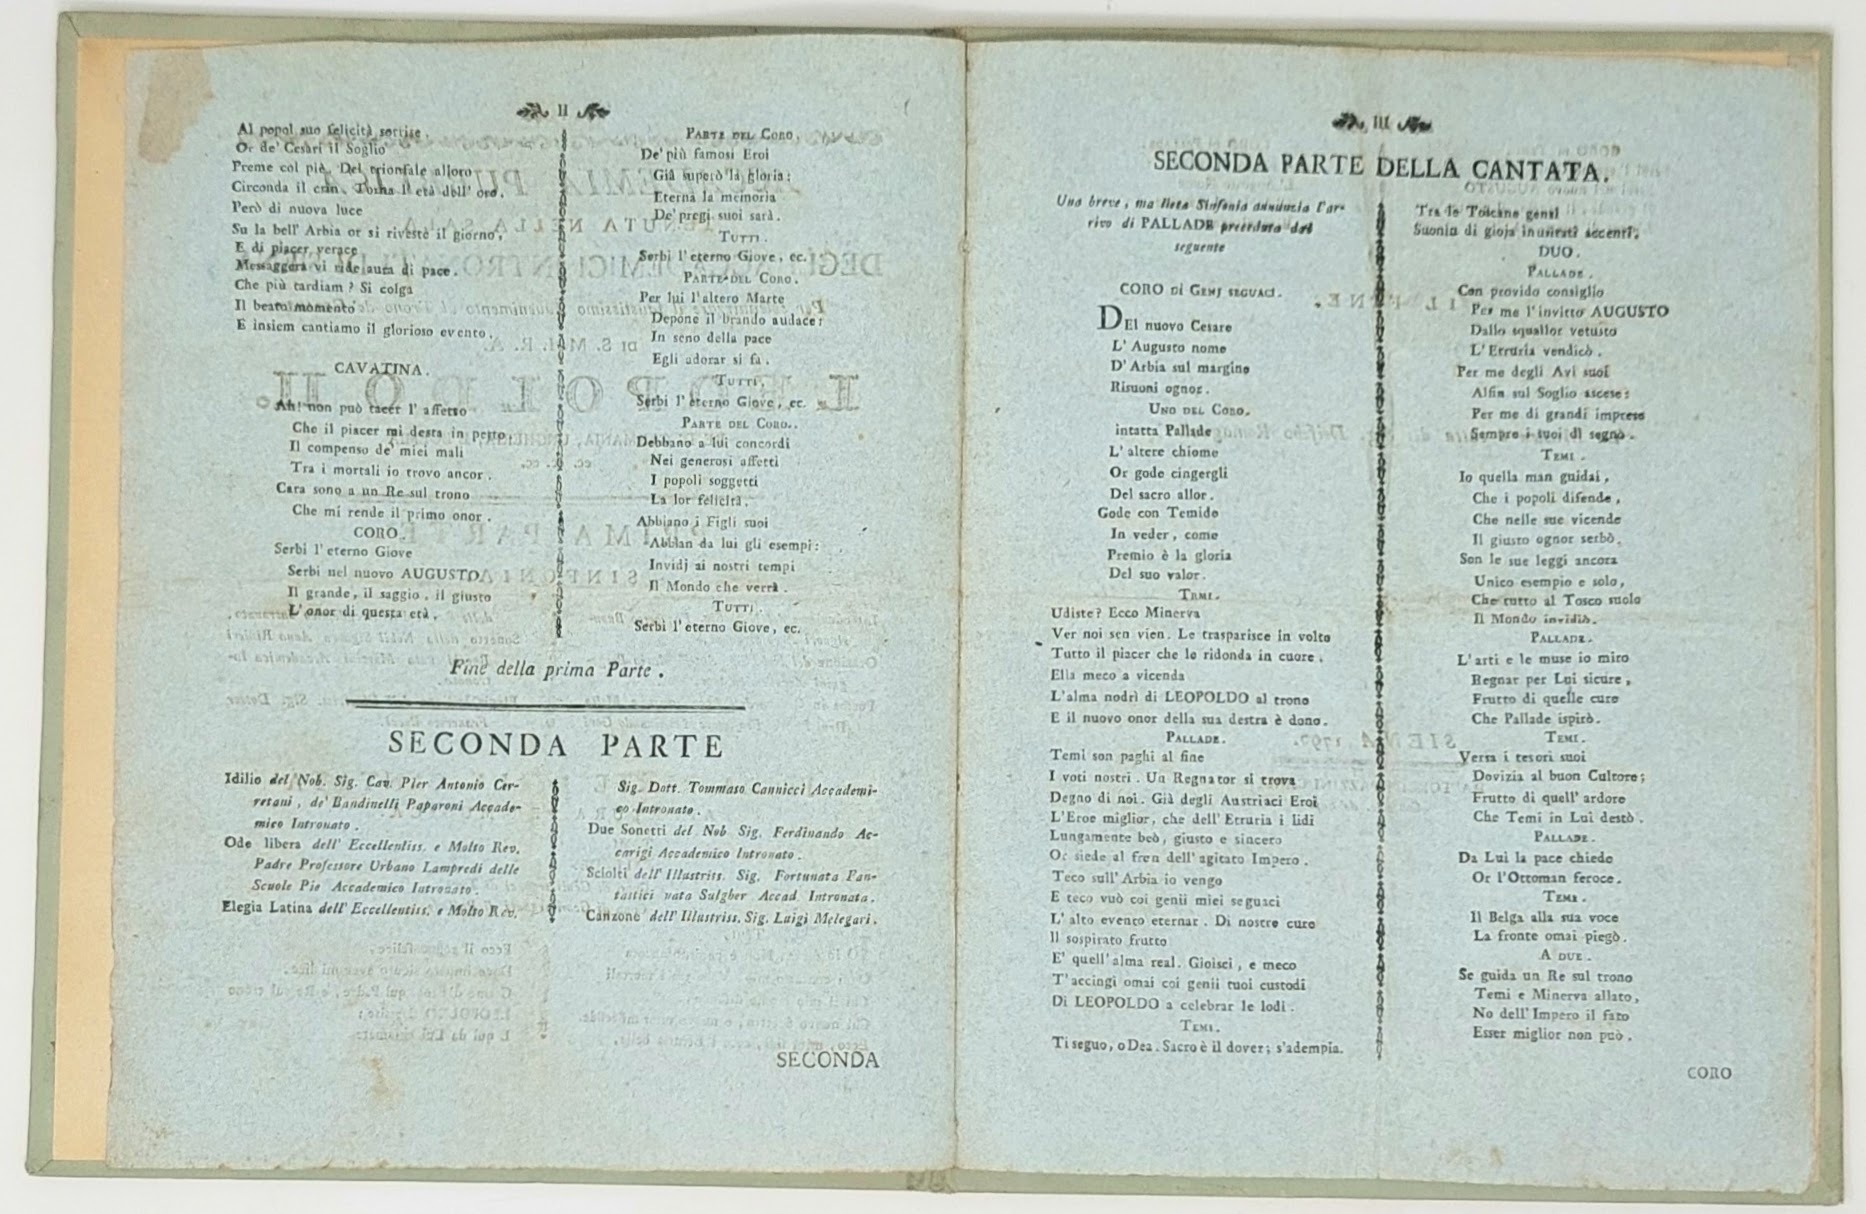 II
Al popol suo felicità sorrise.
Or de' Cesari il Soglio
Preme col piè. Del trionfale alloro
Circonda il crin. Torna l'età dell' oro.
Però di nuova luce
Su la bell' Arbia or si riveste il giorno,
E di piacer verace
Messaggera vi ride aura di pace.
Che più tardiam? Si colga
Il beato momento
E insiem cantiamo il glorioso evento.
CAVATINA.
Ah! non può tacer l' affetto
Che il piacer mi desta in petto
Il compenso de' miei mali
Tra i mortali io trovo ancor.
Cara sono a un Re sul trono
Che mi rende il primo onor.
CORO.
Serbi l' eterno Giove
Serbi nel nuovo AUGUSTO
Il grande, il saggio, il giusto
L' onor di questa età,
PARTE DEL CORO.
De' più famosi Eroi
Già superò la gloria:
Eterna la memoria
De' pregi suoi sarà.
TUTTI.
Serbi l' eterno Giove, ec.
PARTE DEL CORO.
Per lui l'altero Marte
Depone il brando audace:
In seno della pace
Egli adorar si fa.
TUTTI.
Serbi l' eterno Giove, ec.
PARTE DEL CORO.
Debbano a lui concordi
Nei generosi affetti
I popoli soggetti
La lor felicità.
Abbiano i Figli suoi
Abbian da lui gli esempi:
Invidj ai nostri tempi
Il Mondo che verrà.
TUTTI.
Serbi l' eterno Giove, ec.
Fine della prima Parte.
SECONDA PARTE
Idilio del Nob. Sig. Cav. Pier Antonio Cer-
retani, de' Bandinelli Paparoni Accade-
mico Intronato.
Ode libera dell' Eccellentiss. e Molto Rev.
Padre Professore Urbano Lampredi delle
Scuole Pie Accademico Intronato.
Elegia Latina dell' Eccellentiss. e Molto Rev.
Sig. Dott. Tommaso Cannicci Accademi-
co Intronato.
Due Sonetti del Nob Sig. Ferdinando Ac-
carigi Accademico Intronato.
Sciolti dell' Illustriss. Sig. Fortunata Fan-
tastici nata Sulgher Accad. Intronata.
Canzone dell' Illustriss. Sig. Luigi Melegari.
SECONDA
III
SECONDA PARTE DELLA CANTATA.
Una breve, ma lieta Sinfonia annunzia l'ar-
rivo di PALLADE preceduta dal
seguente
CORO di GENJ SEGUACI.
DEl nuovo Cesare
L' Augusto nome
D' Arbia sul margine
Risuoni ognor.
UNO DEL CORO.
intatta Pallade
L' altere chiome
Or gode cingergli
Del sacro allor.
Gode con Temide
In veder, come
Premio è la gloria
Del suo valor.
TEMI.
Udiste? Ecco Minerva
Ver noi sen vien. Le trasparisce in volto
Tutto il piacer che le ridonda in cuore.
Ella meco a vicenda
L'alma nodrì di LEOPOLDO al trono
E il nuovo onor della sua destra è dono.
PALLADE.
Temi son paghi al fine
I voti nostri. Un Regnator si trova
Degno di noi. Già degli Austriaci Eroi
L'Eroe miglior, che dell' Etruria i lidi
Lungamente beò, giusto e sincero
Or siede al fren dell' agitato Impero.
Teco sull' Arbia io vengo
E teco vuò coi genii miei seguaci
L' alto evento eternar. Di nostre cure
Il sospirato frutto
E' quell' alma real. Gioisci, e meco
T' accingi omai coi genii tuoi custodi
Di LEOPOLDO a celebrar le lodi.
TEMI.
Ti seguo, o Dea. Sacro è il dover; s'adempia.
Tra le Toscane genti
Suonin di gioja inusitati accenti.
DUO.
PALLADE.
Con provido consiglio
Per me l'invitto AUGUSTO
Dallo squallor vetusto
L' Etruria vendicò.
Per me degli Avi suoi
Alfin sul Soglio ascese:
Per me di grandi imprese
Sempre i suoi dì segnò.
TEMI.
Io quella man guidai,
Che i popoli difende,
Che nelle sue vicende
Il giusto ognor serbò.
Son le sue leggi ancora
Unico esempio e solo,
Che tutto al Tosco suolo
Il Mondo invidiò.
PALLADE.
L'arti e le muse io miro
Regnar per Lui sicure,
Frutto di quelle cure
Che Pallade ispirò.
TEMI.
Versa i tesori suoi
Dovizia al buon Cultore;
Frutto di quell' ardore
Che Temi in Lui destò.
PALLADE.
Da Lui la pace chiede
Or l'Ottoman feroce.
TEMI.
Il Belga alla sua voce
La fronte omai piegò.
A DUE.
Se guida un Re sul trono
Temi e Minerva allato,
No dell' Impero il fato
Esser miglior non può.
CORO